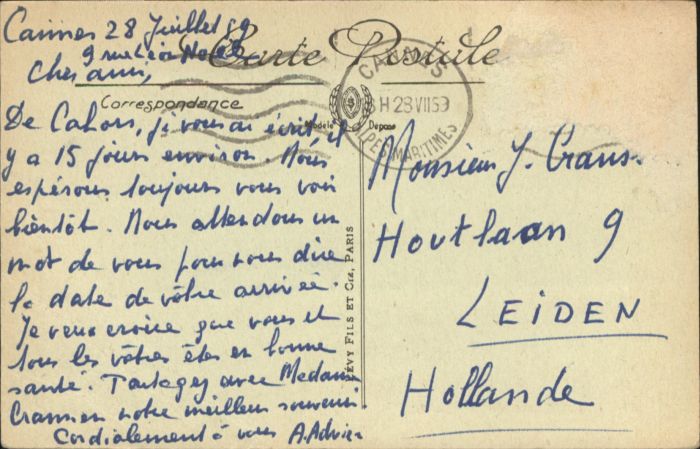 Cannes 28 Juillet 59
9 rue Léon Noël
Chers amis,
Carte Postale
Correspondance
Modèle Déposé
CANNES
H 28 VII 59
ALPES MARITIMES
De Cahors, je vous ai écrit il
y a 15 jours environ. Nous
espérons toujours vous voir
bientôt. Nous attendons un
mot de vous pour nous dire
la date de votre arrivée.
Je veux croire que vous et
tous les vôtres êtes en bonne
santé. Partagez avec Madame
Crans en notre meilleur souvenir.
Cordialement à vous A. Advier
LÉVY FILS ET CIE, PARIS
Monsieur J. Crans.
Houtlaan 9
LEIDEN
Hollande